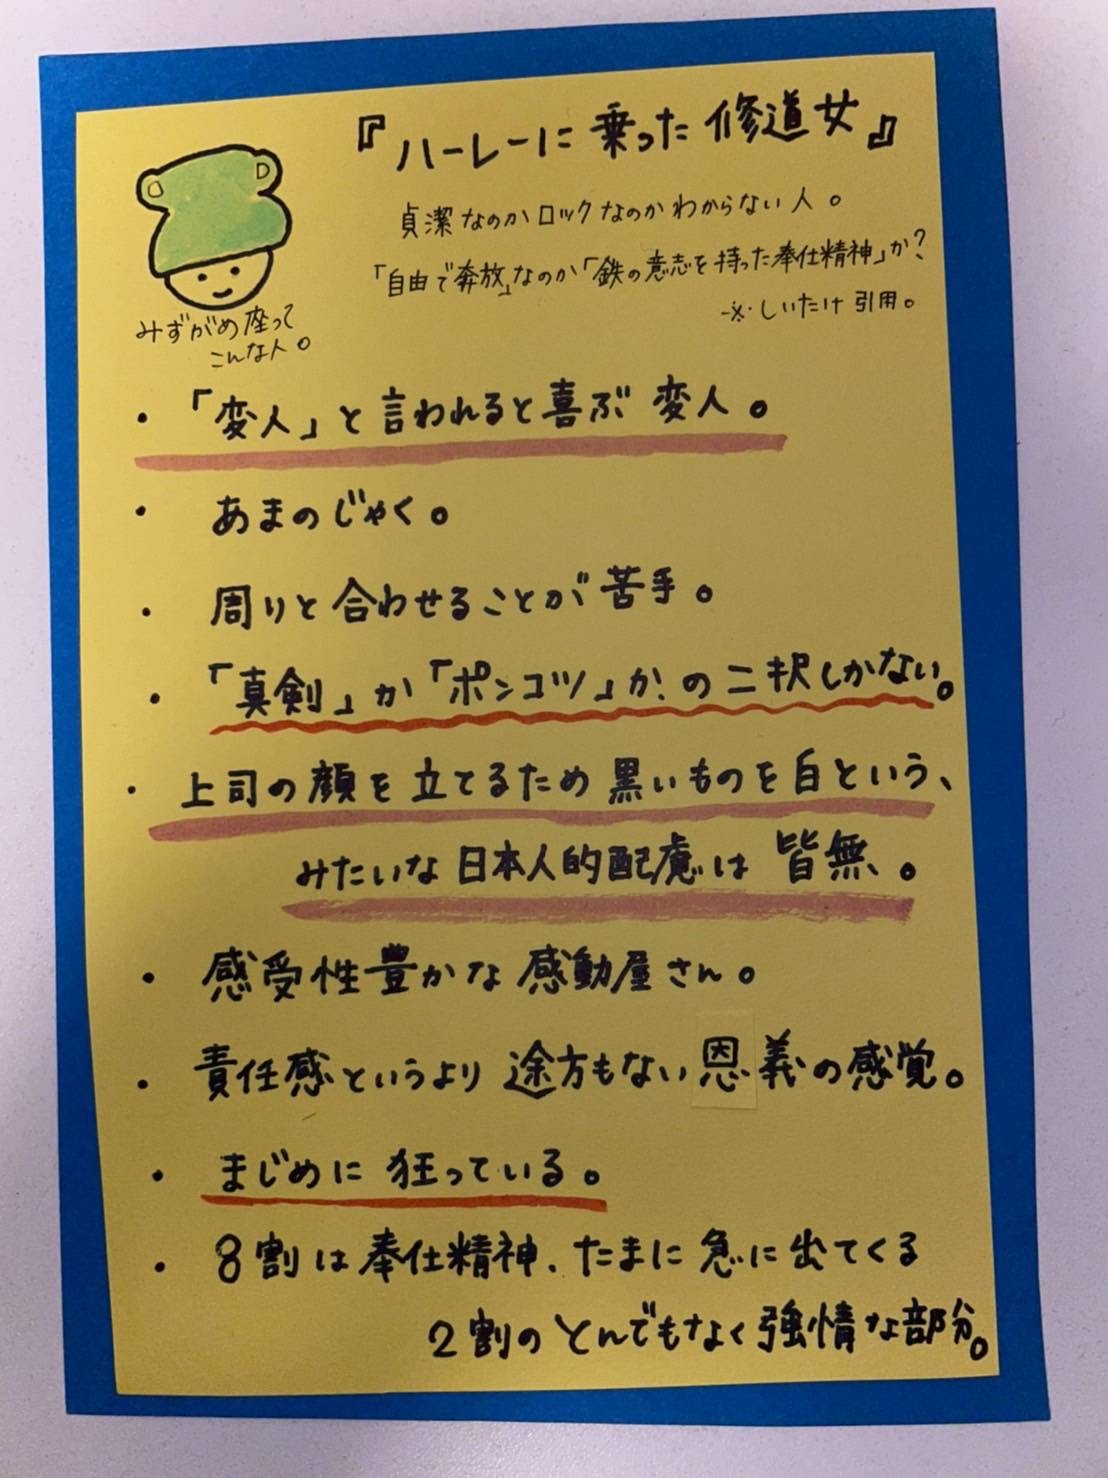 『ハーレーに乗った修道女』
貞潔なのかロックなのかわからない人。
「自由で奔放」なのか「鉄の意志を持った奉仕精神」か?
-※・しいたけ引用。
みずがめ座って
こんな人。
・「変人」と言われると喜ぶ変人。
・あまのじゃく。
・周りと合わせることが苦手。
・「真剣」か「ポンコツ」か、の二択しかない。
・上司の顔を立てるため黒いものを白という、
みたいな日本人的配慮は皆無。
・感受性豊かな感動屋さん。
・責任感というより途方もない恩義の感覚。
・まじめに狂っている。
・8割は奉仕精神、たまに急に出てくる
2割のとんでもなく強情な部分。